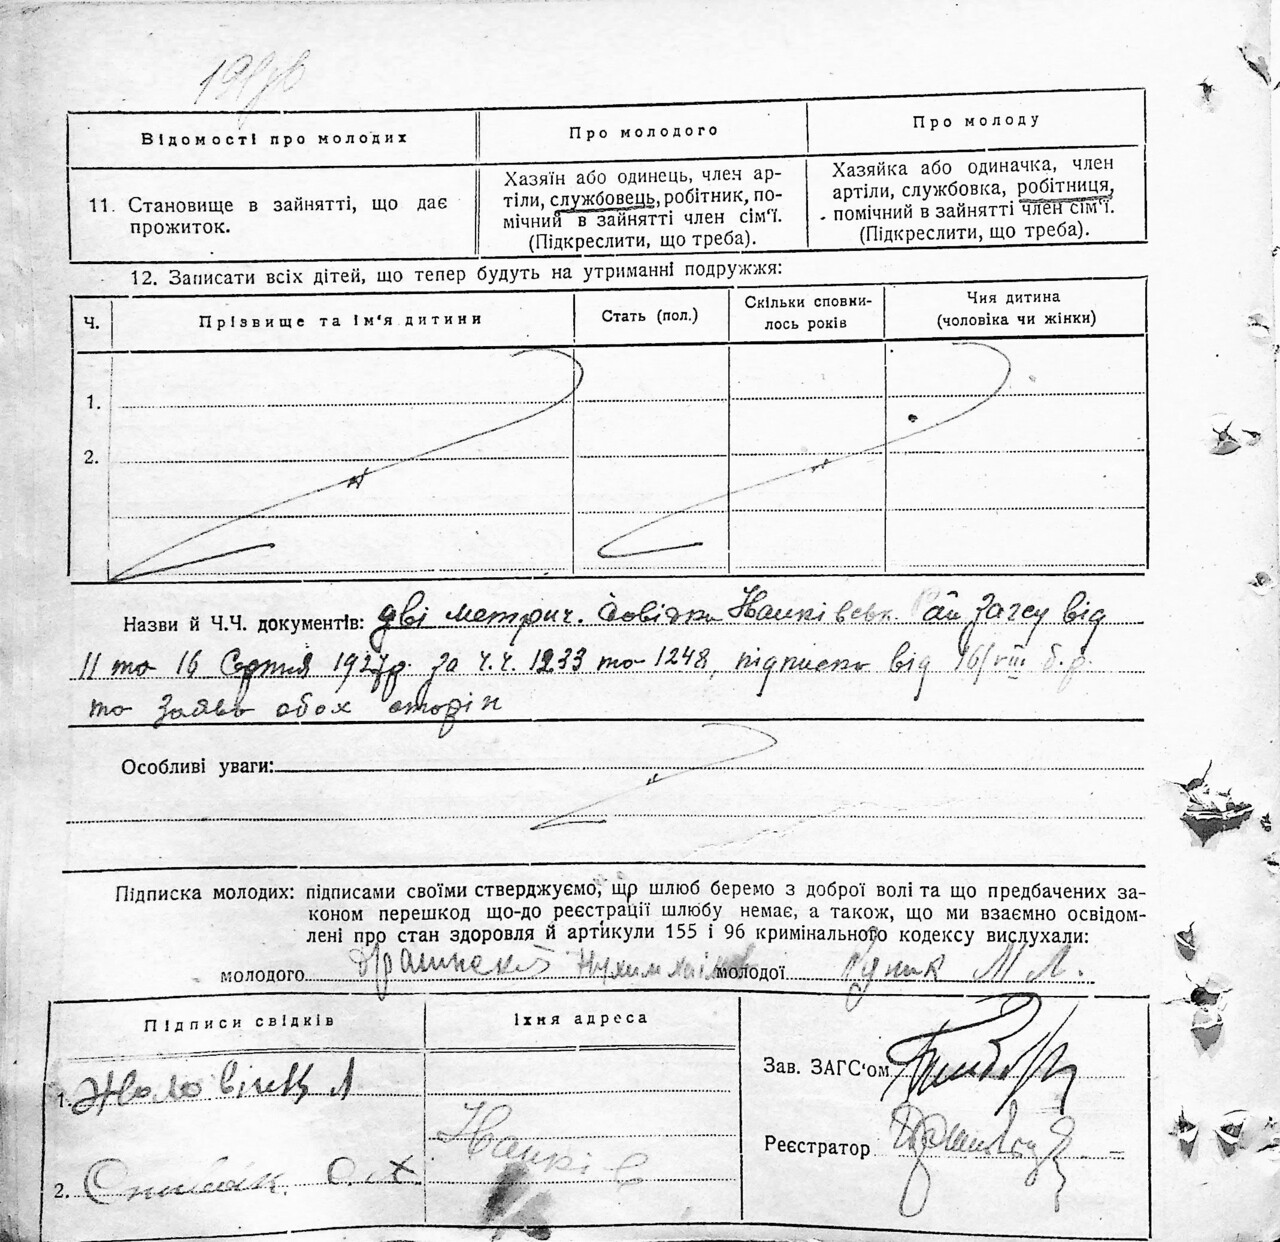 Відомості про молодих
Про молодого
Про молоду
11. Становище в зайнятті, що дає
прожиток.
Хазяїн або одинець, член ар-
тіли, службовець, робітник, по-
мічний в зайнятті член сім'ї.
(Підкреслити, що треба).
Хазяйка або одиначка, член
артіли, службовка, робітниця,
помічний в зайнятті член сім'ї.
(Підкреслити, що треба).
12. Записати всіх дітей, що тепер будуть на утриманні подружжя:
Ч.
Прізвище та ім'я дитини
Стать (пол.)
Скільки сповни-
лось років
Чия дитина
(чоловіка чи жінки)
1.
2.
Назви й Ч.Ч. документів: дві метрич. довідки Рай Загсу від
11 та 16 Серпня 1927р. за ч.ч. 1233 та 1248, підписка від 16/VIII б.р.
та заява обох сторін
Особливі уваги:
Підписка молодих: підписами своїми стверджуємо, що шлюб беремо з доброї волі та що предбачених за-
коном перешкод що-до реєстрації шлюбу немає, а також, що ми взаємно освідом-
лені про стан здоровля й артикули 155 і 96 кримінального кодексу вислухали:
молодого молодої Рудник М Л.
Підписи свідків
Їхня адреса
1.
2. Співак О. Х
Зав. ЗАГС'ом
Реєстратор